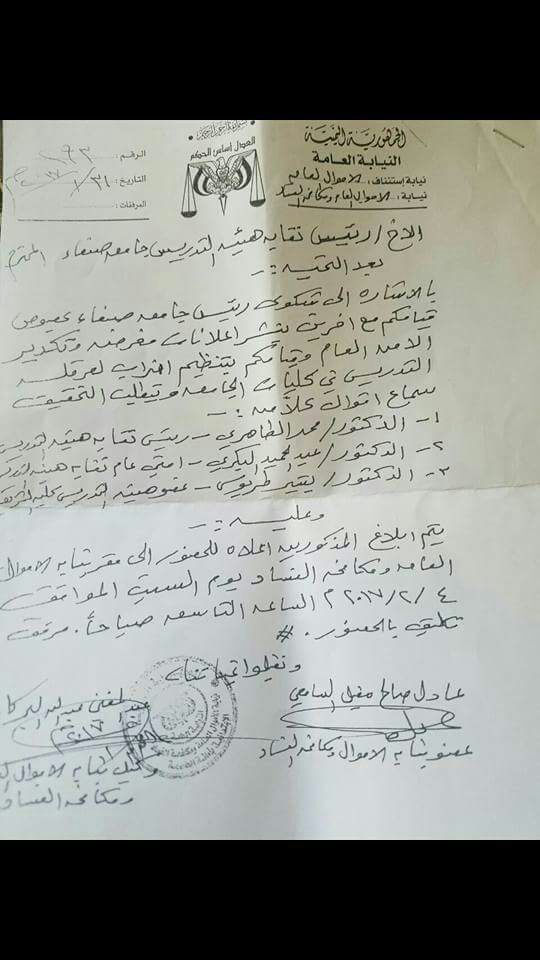 الجمهورية اليمنية
النيابة العامة
نيابة إستئناف: الاموال العامه
نيابة: الاموال العامه ومكافحة الفساد
العدل أساس الحكم
الرقم:
التاريخ: ٣١/١/٢٠١٧م
المرفقات:
الاخ/ رئيس نقابه هيئه التدريس جامعه صنعاء المحترم
بعد التحيه :-
بالاشاره الى شكوى رئيس جامعه صنعاء بخصوص
قيامكم مع اخرين بنشر اعلانات مغرضه وتكدير
الامن العام وقيامكم بتنظيم اضراب لعرقله
التدريس في كليات الجامعه وتطلب التحقيق
سماع اقوال كلاً من :-
١- الدكتور/ محمد الظاهري - رئيس نقابه هيئه التدريس
٢- الدكتور/ عبدالحميد البكري - امين عام نقابه هيئه التدريس
٣- الدكتور/ - عضو هيئه التدريس بكليه
وعليه :-
يتم ابلاغ المذكورين اعلاه للحضور الى مقر نيابه الاموال
العامه ومكافحه الفساد يوم السبت الموافق
٤/٢/٢٠١٧م الساعه التاسعه صباحاً. مرفق
تكليف بالحضور. #
وتفضلوا
عادل صالح
عضو نيابه الاموال ومكافحه الفساد
وكيل نيابه الاموال
ومكافحه الفساد